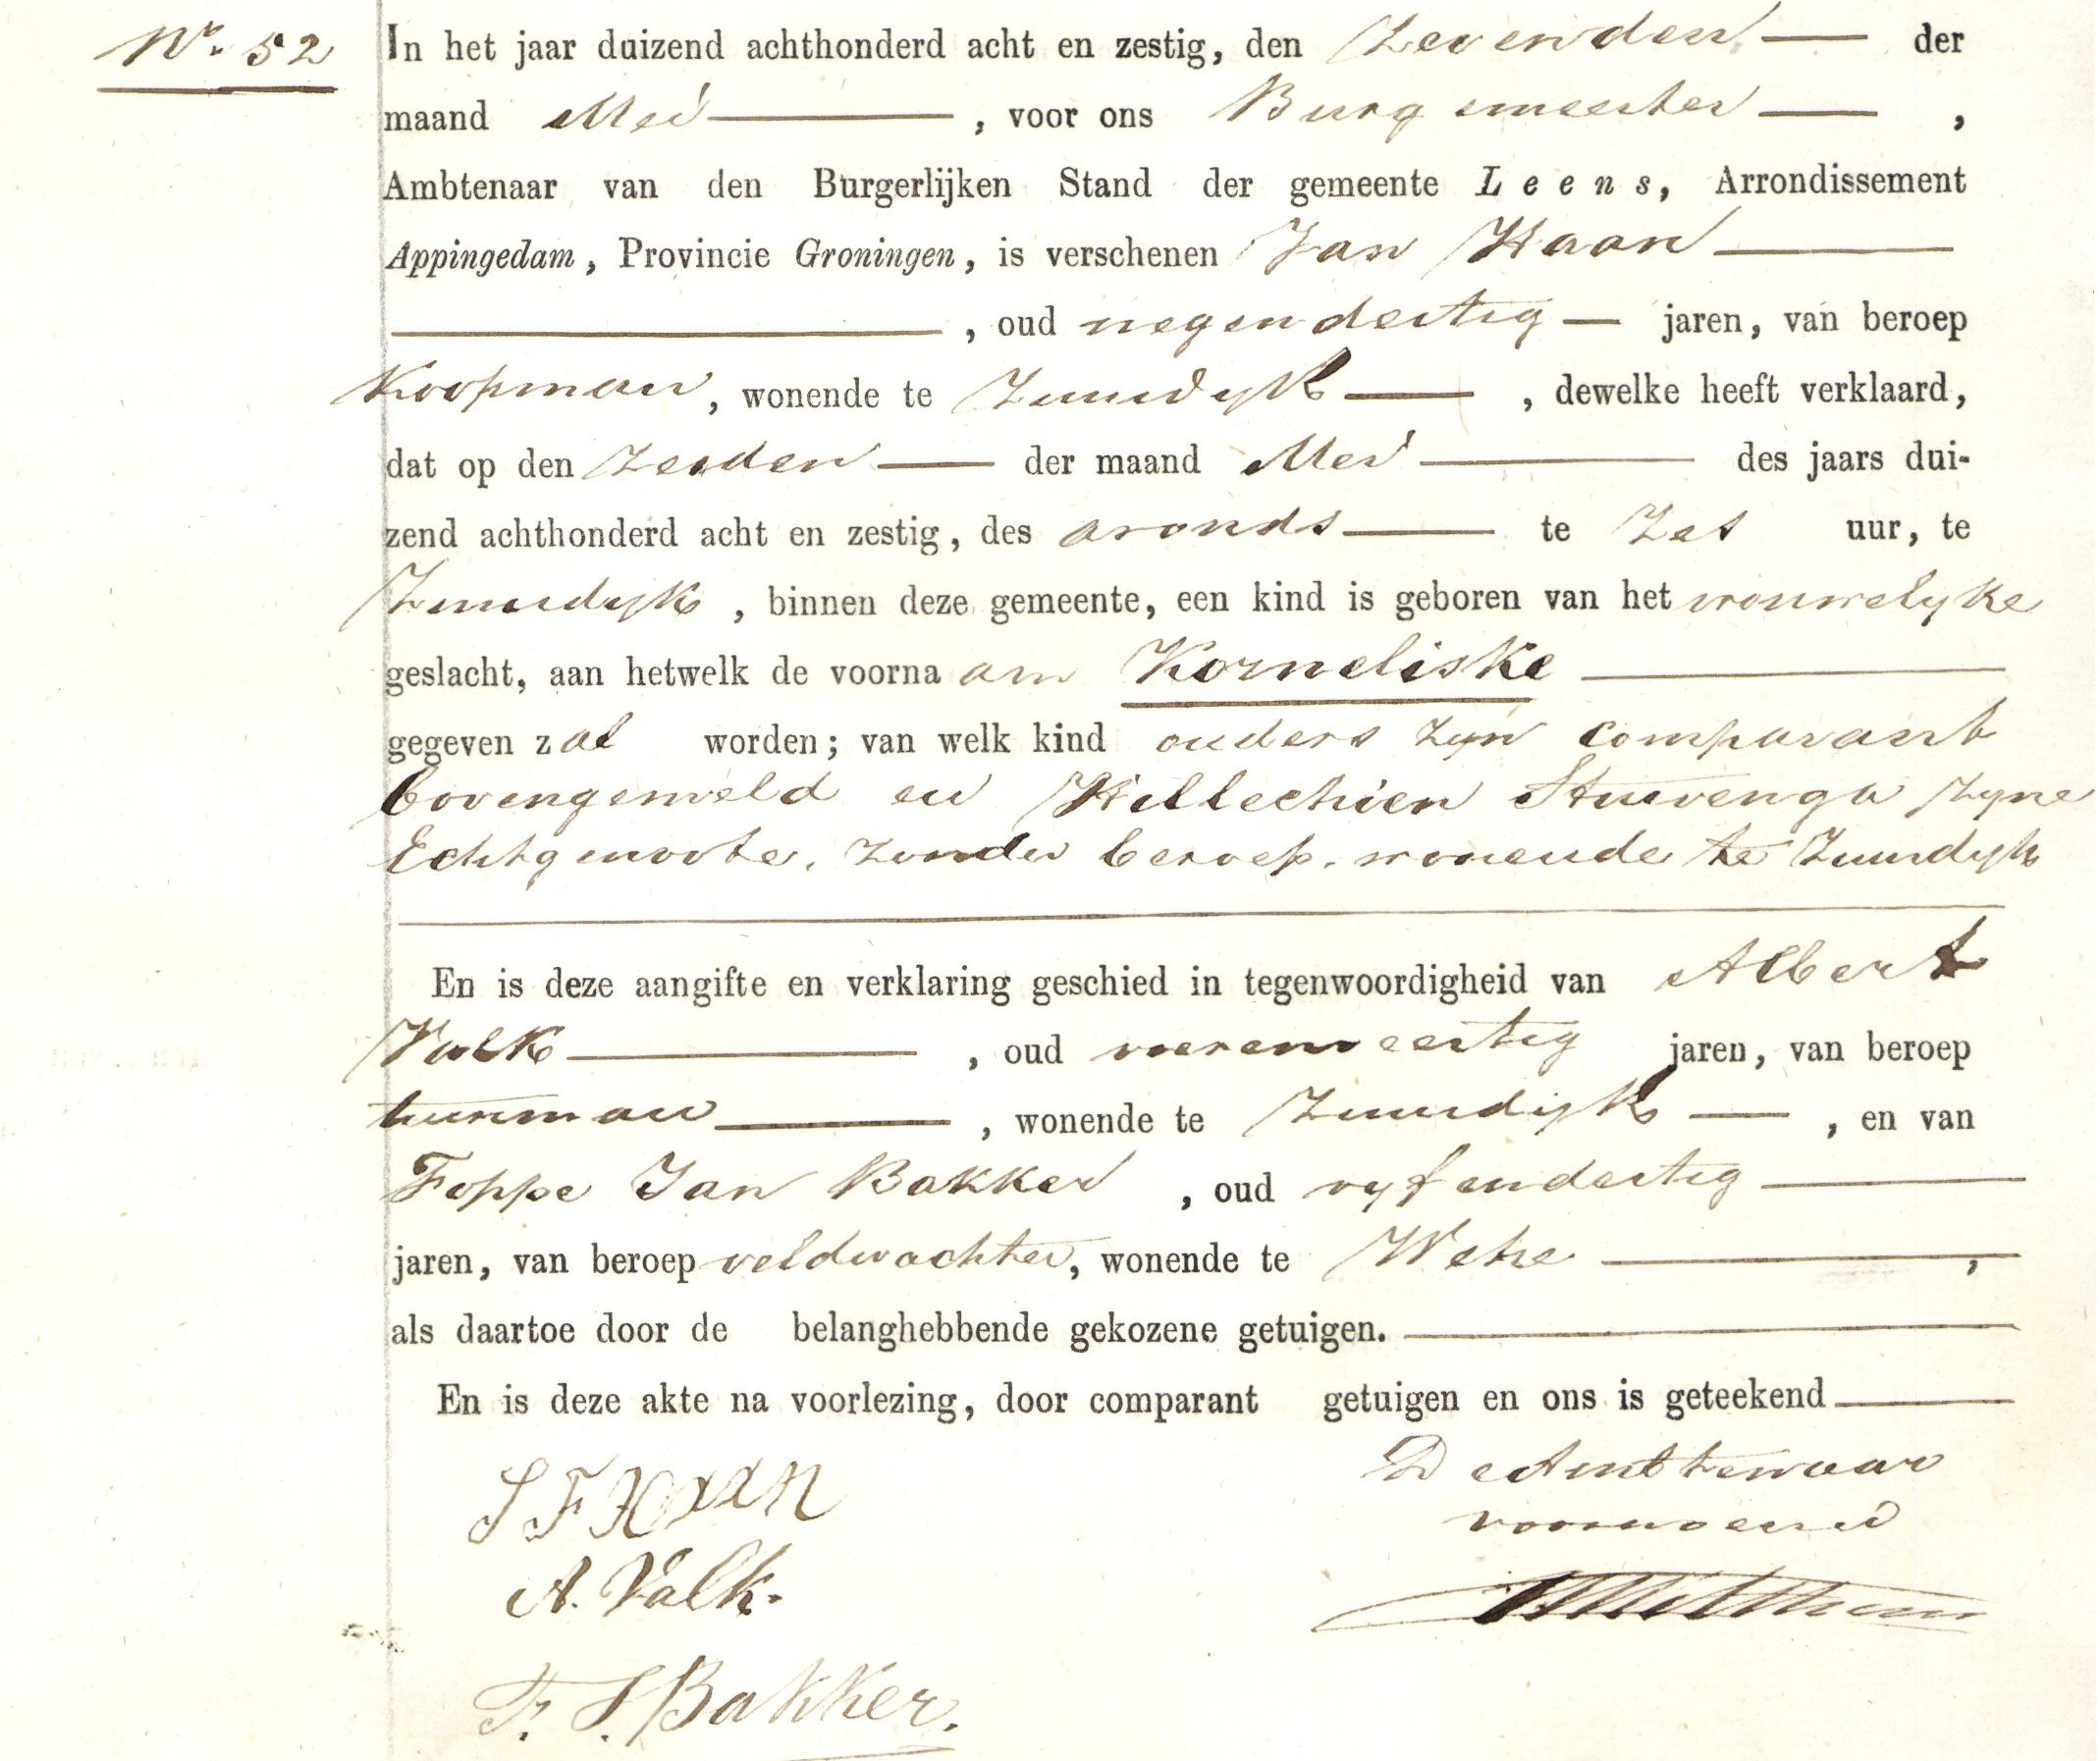 No. 52
In het jaar duizend achthonderd acht en zestig, den Zevenden der
maand Mei, voor ons Burgemeester,
Ambtenaar van den Burgerlijken Stand der gemeente Leens, Arrondissement
Appingedam, Provincie Groningen, is verschenen Jan Haan
, oud negendertig jaren, van beroep
Koopman, wonende te Zuurdyk, dewelke heeft verklaard,
dat op den Zesden der maand Mei des jaars dui-
zend achthonderd acht en zestig, des avonds te Zes uur, te
Zuurdyk, binnen deze gemeente, een kind is geboren van het vrouwelyke
geslacht, aan hetwelk de voornaam Korneliske
gegeven zal worden; van welk kind ouders zyn comparant
bovengemeld en Hillechien Stuivenga zyne
Echtgenoote, zonder beroep, wonende te Zuurdyk
En is deze aangifte en verklaring geschied in tegenwoordigheid van Albert
Valk, oud vierenveertig jaren, van beroep
tuinman, wonende te Zuurdyk, en van
Foppe Jan Bakker, oud vyfendertig
jaren, van beroep veldwachter, wonende te Wehe,
als daartoe door de belanghebbende gekozene getuigen.
En is deze akte na voorlezing, door comparant getuigen en ons is geteekend
J F Haan
De Ambtenaar
voornoemd
A. Valk.
F. J. Bakker.